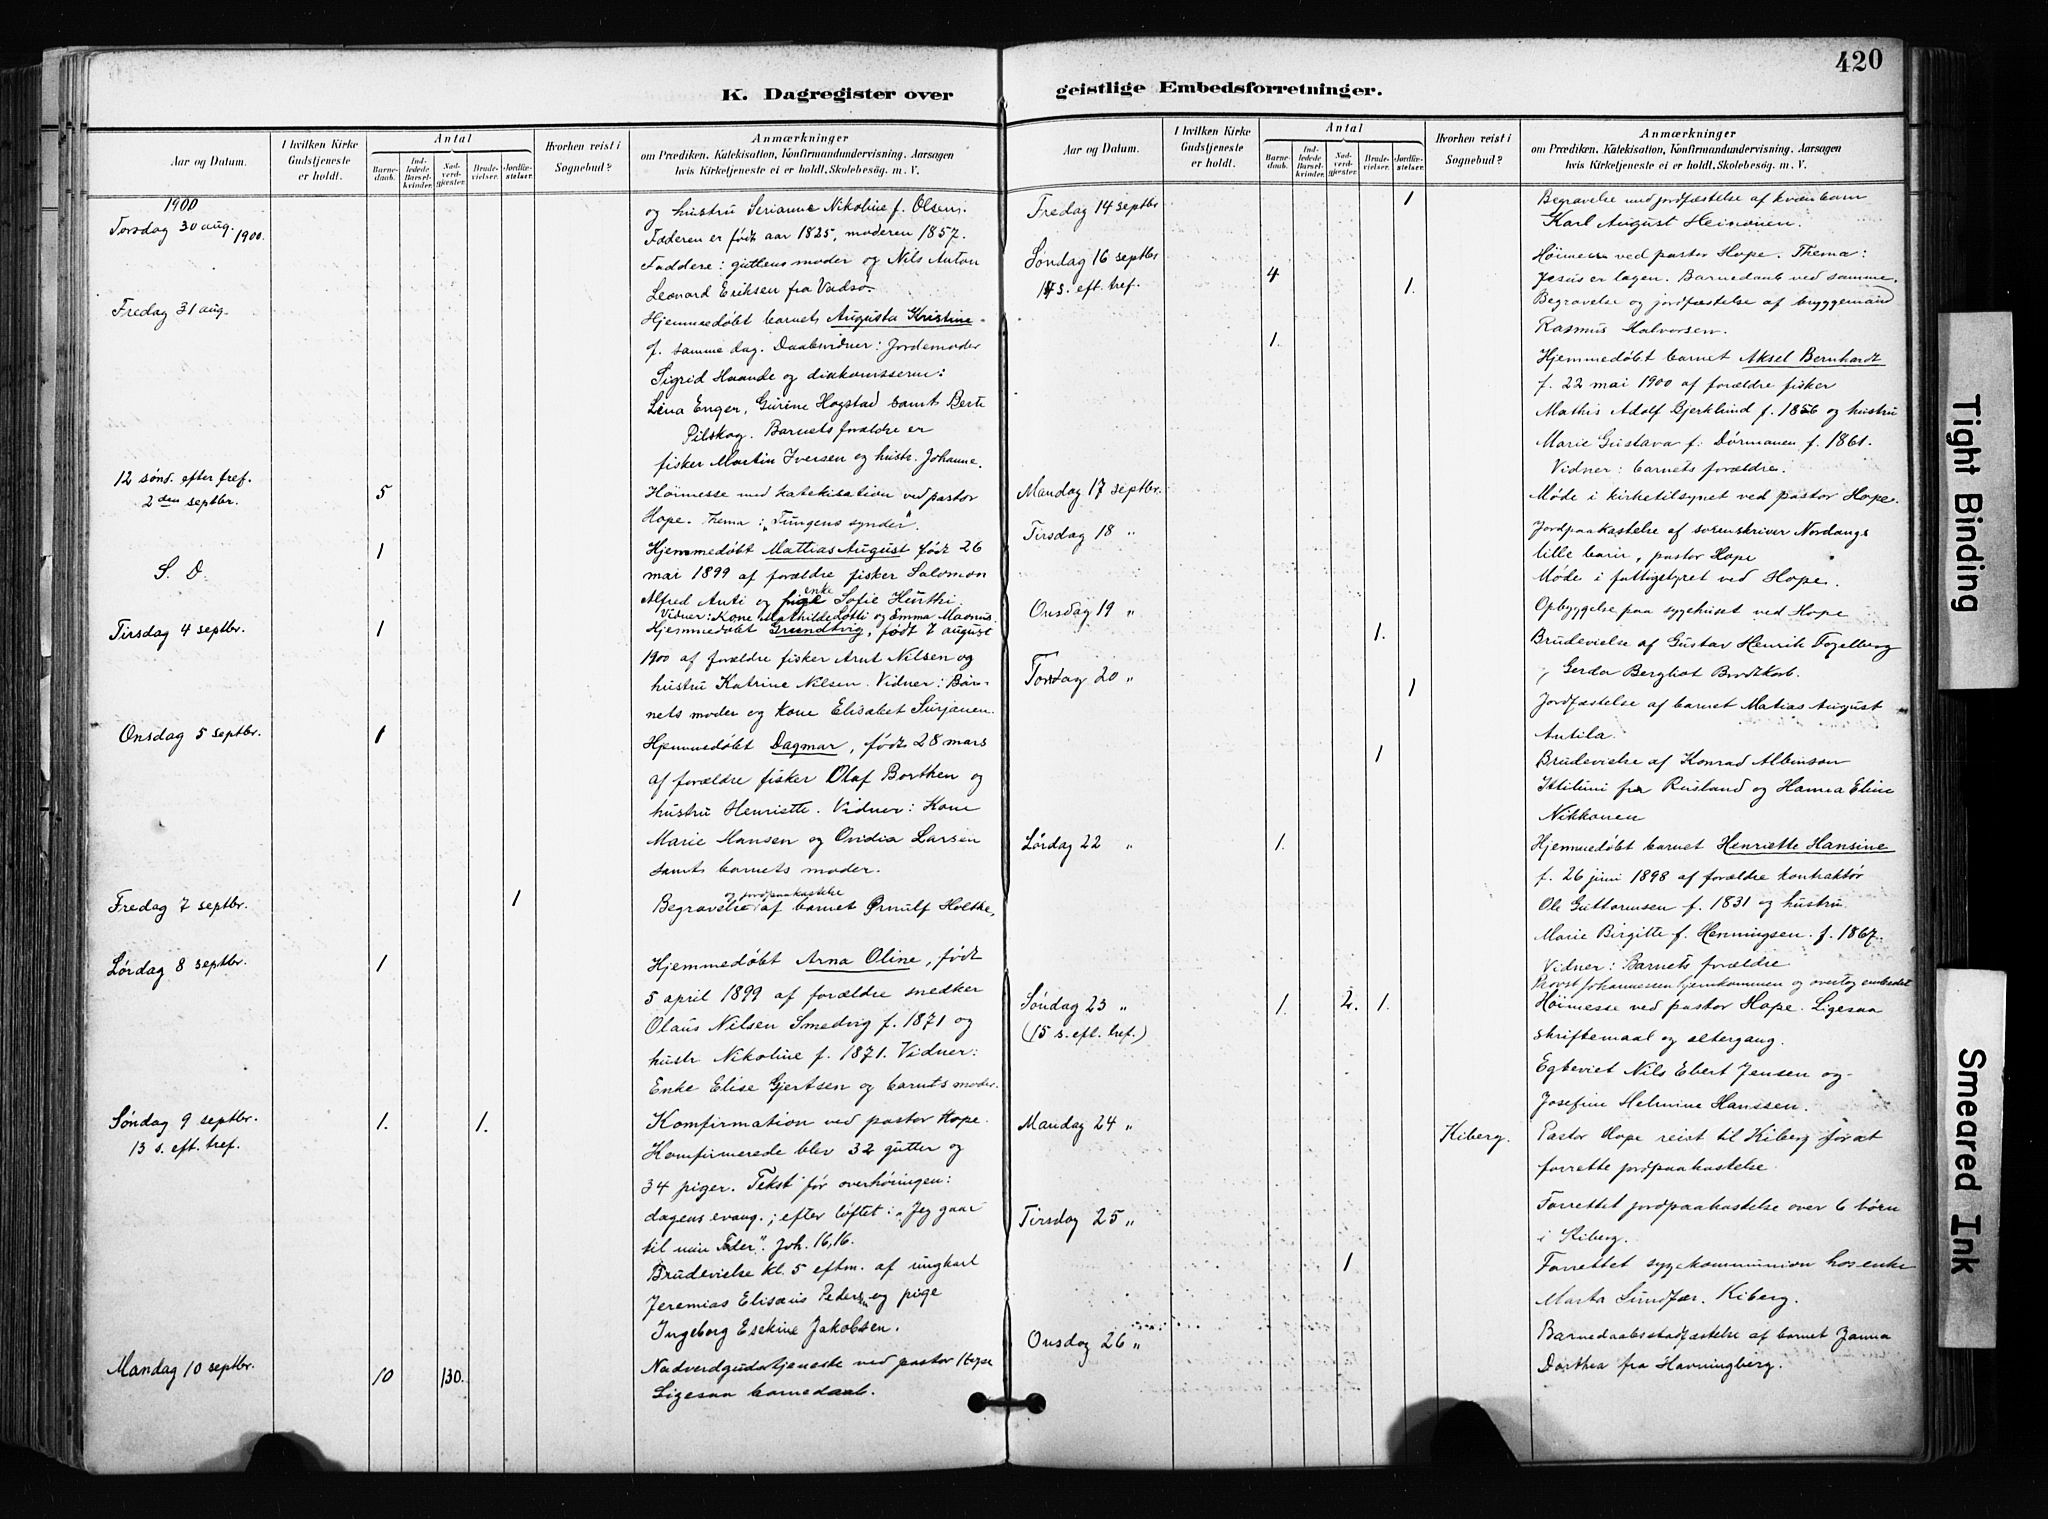 420
K. Dagregister over
geistlige Embedsforretninger.
Aar og Datum.
I hvilken Kirke Gudstjeneste er holdt.
Antal
Barnedaab.
Indledede Barselkvinder.
Nadverdgjester.
Brudevielser.
Jordfæstelser.
Hvorhen reist i Sognebud?
Anmærkninger
om Prædiken, Katekisation, Konfirmandundervisning. Aarsagen
hvis Kirketjeneste ei er holdt. Skolebesøg. m. V.
1900
Torsdag 30 aug. 1900.
og hustru Serianne Nikoline f. Olsen.
Faderen er født aar 1825, moderen 1857.
Faddere: guttens moder og Nils Anton
Leonard Eriksen fra Vadsø.
Fredag 31 aug.
Hjemmedøbt barnet Augusta Kristine
f. samme dag. Daabsvidner: Jordemoder
Sigrid Haande og diakonisserne:
Lina Enger, Gurine Hogstad samt Berte
Pilskog. Barnets forældre er
fisker Martin Iversen og hustr. Johanne.
12 sønd. efter tref.
2den septbr.
5
Høimesse med katekisation ved pastor
Hope. Tema: "Tungens synder".
S. D
1
Hjemmedøbt Mattias August født 26
mai 1899 af forældre fisker Salomon
Alfred Anti og enke Sofie Hurtti.
Vidner: Kone Mathilde Lotti og Emma Magnus.
Tirsdag 4 septbr.
1
Hjemmedøbt Grundtvig, født 7 august
1900 af forældre fisker Arnt Nilsen og
hustru Katrine Nilsen. Vidner: Bar-
nets moder og kone Elisabet Surjanen.
Onsdag 5 septbr.
1
Hjemmedøbt Dagmar, født 28 mars
af forældre fisker Olaf Borthen og
hustru Henriette. Vidner: Kone
Marie Hansen og Ovidia Larsen
samt barnets moder.
Fredag 7 septbr.
1
og jordpaakastelse
Begravelse af barnet Ørnulf Holthe.
Lørdag 8 septbr.
1
Hjemmedøbt Arna Oline, født
5 april 1899 af forældre snedker
Olaus Nilsen Smedvig f. 1871 og
hustr Nikoline f. 1871. Vidner:
Enke Elise Gjertsen og barnets moder.
Søndag 9 septbr.
13 s. eft. tref.
1. 1.
Konfirmation ved pastor Hope.
Konfirmerede blev 32 gutter og
34 piger. Tekst før overhøringen:
dagens evang.; efter løftet: "Jeg gaar
til min Fader". Joh. 16,16.
Brudevielse kl. 5 eftm. af ungkarl
Jeremias Elisæus Pedersen og pige
Ingeborg Esekine Jakobsen.
Mandag 10 septbr.
10 130.
Nadverdgudstjeneste ved pastor Hope
Ligesaa barnedaab.
Aar og Datum.
I hvilken Kirke Gudstjeneste er holdt.
Antal
Barnedaab.
Indledede Barselkvinder.
Nadverdgjester.
Brudevielser.
Jordfæstelser.
Hvorhen reist i Sognebud?
Anmærkninger
om Prædiken, Katekisation, Konfirmandundervisning. Aarsagen
hvis Kirketjeneste ei er holdt. Skolebesøg. m. V.
Fredag 14 septbr
1
Begravelse med jordfæstelse af kvænbarn
Karl August Heimonen.
Søndag 16 septbr
14 s. eft. tref.
4
Høimesse ved pastor Hope. Thema:
Jesus er lægen. Barnedaab ved samme.
1.
Begravelse og jordfæstelse af bryggemand
Rasmus Halvorsen.
1.
Hjemmedøbt barnet Aksel Bernhardt
f. 22 mai 1900 af forældre fisker
Mathis Adolf Bjerklund f. 1856 og hustru
Marie Gustava f. Dørmanen f. 1861.
Vidner: barnets forældre.
Mandag 17 septbr.
Møde i kirketilsynet ved pastor Hope.
Tirsdag 18 "
Jordpaakastelse af sorenskriver Nordangs
lille barn, pastor Hope
Møde i fattigstyret ved Hope.
Onsdag 19 "
Opbyggelse paa sygehuset ved Hope
1.
Brudevielse af Gustav Henrik Fogelberg
Gerda Bergliot Brodtkorb.
Torsdag 20 "
1
Jordfæstelse af barnet Matias August
Antila.
1
Brudevielse af Konrad Albinson
fra Rusland og Hanna Eline
Nikkonen
Lørdag 22 "
1.
Hjemmedøbt barnet Henriette Hansine
f. 26 juni 1898 af forældre kontraktør
Ole Guttormsen f. 1831 og hustru
Marie Birgitte f. Henningsen. f. 1867.
Vidner: Barnets forældre
Provst Johannessen hjemkommen og overtog embedet
Søndag 23 "
(15 s. eft. tref.)
1. 2. 1.
Høimesse ved pastor Hope. Ligesaa
skriftemaal og altergang.
Egteviet Nils Ebert Jensen og
Josefine Helmine Hanssen.
Mandag 24 "
Kiberg.
Pastor Hope reist til Kiberg for at
forrette jordpaakastelse.
Tirsdag 25 "
Forrettet jordpaakastelse over 6 børn
i Kiberg.
1
Forrettet sygekommunion hos enke
Marta Sundfær. Kiberg.
Onsdag 26 "
Barnedaabsstadfæstelse af barnet Janna
Dorthea fra Havningberg.
Tight Binding
Smeared Ink